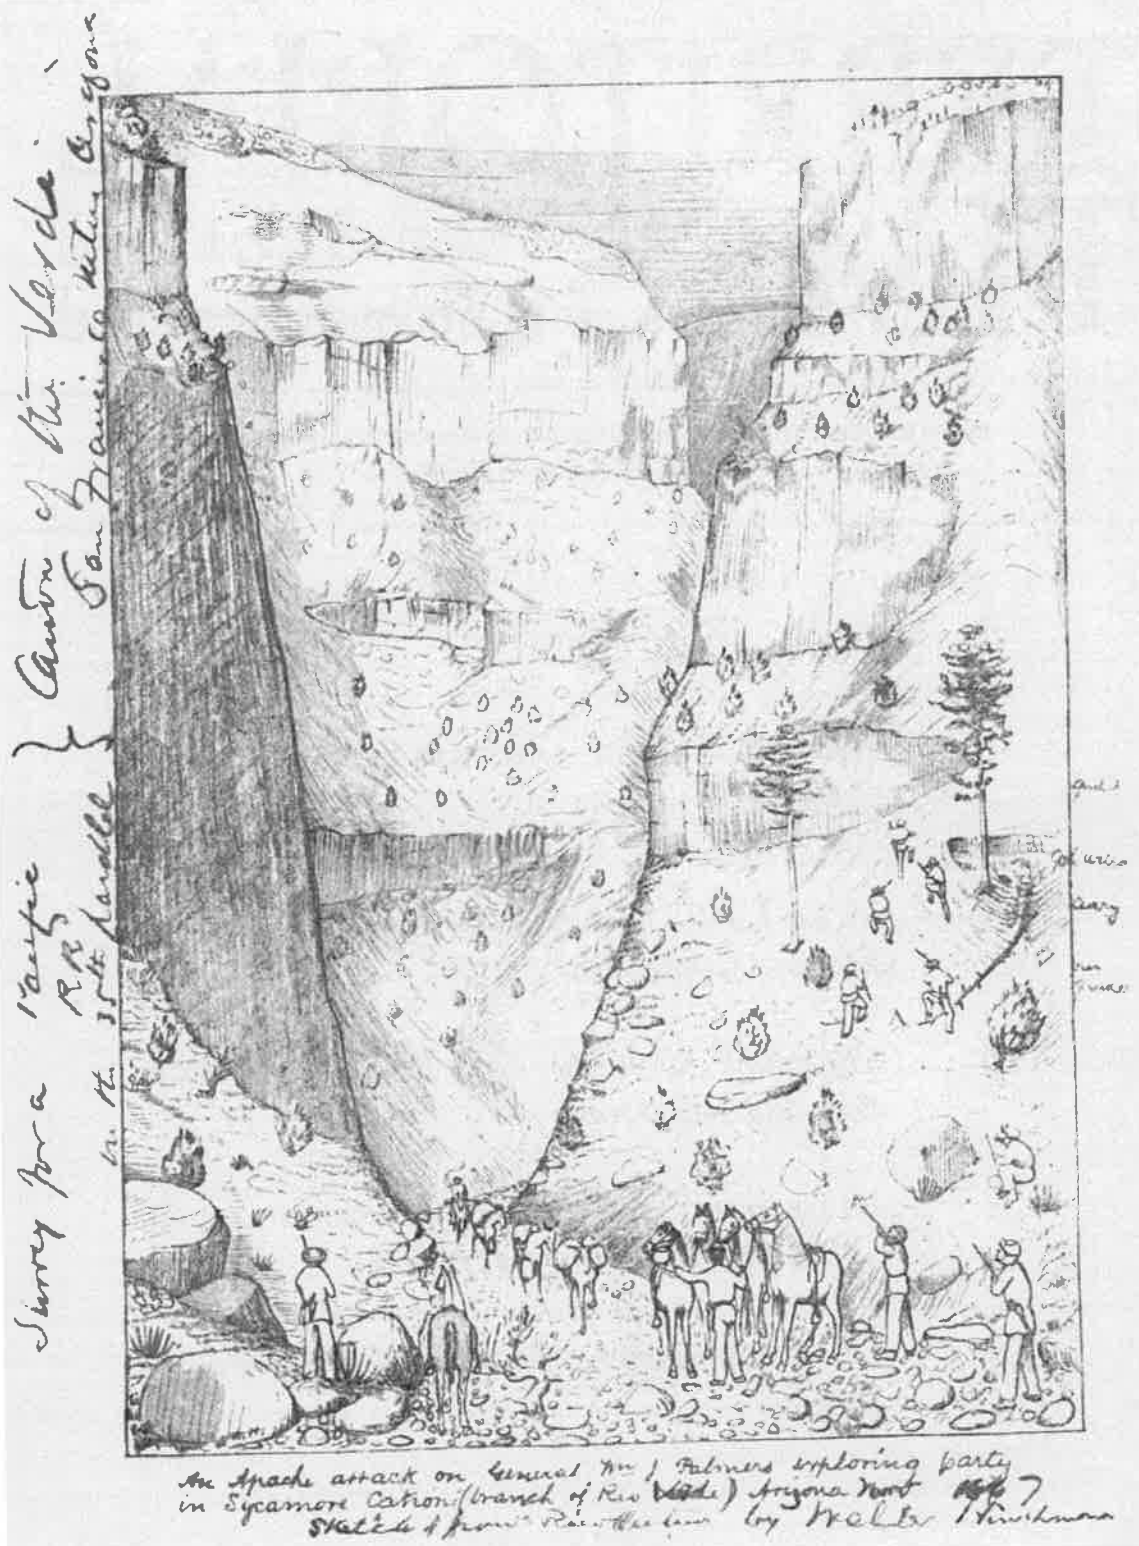 Survey for a Pacific
R R
in the 35th Parallel
Cañon of the Verde
San Francisco Arizona
Cary
An Apache attack on General Wm J Palmers exploring party
in Sycamore Cañon (branch of Rio Verde) Arizona Nov 1867
Sketched from Recollection by